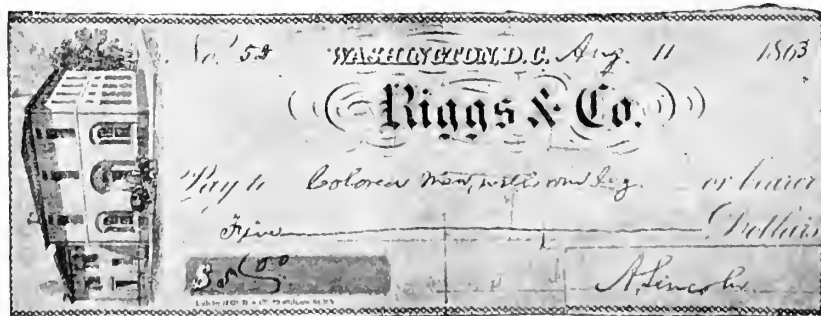 No. 52 WASHINGTON, D.C. Aug. 11 1863
Riggs & Co.
Pay to Colored man, with one leg. or bearer
Five Dollars
$5/00
A. Lincoln